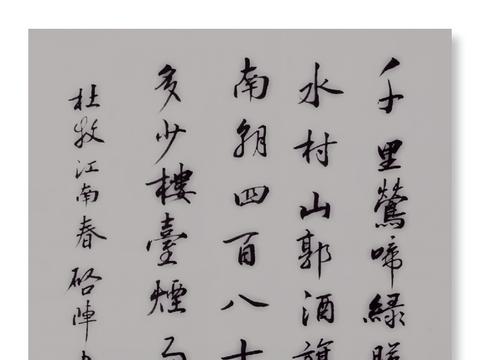 千里鶯啼綠映
水村山郭酒旗
南朝四百八十
多少樓臺煙雨
杜牧江南春 陣